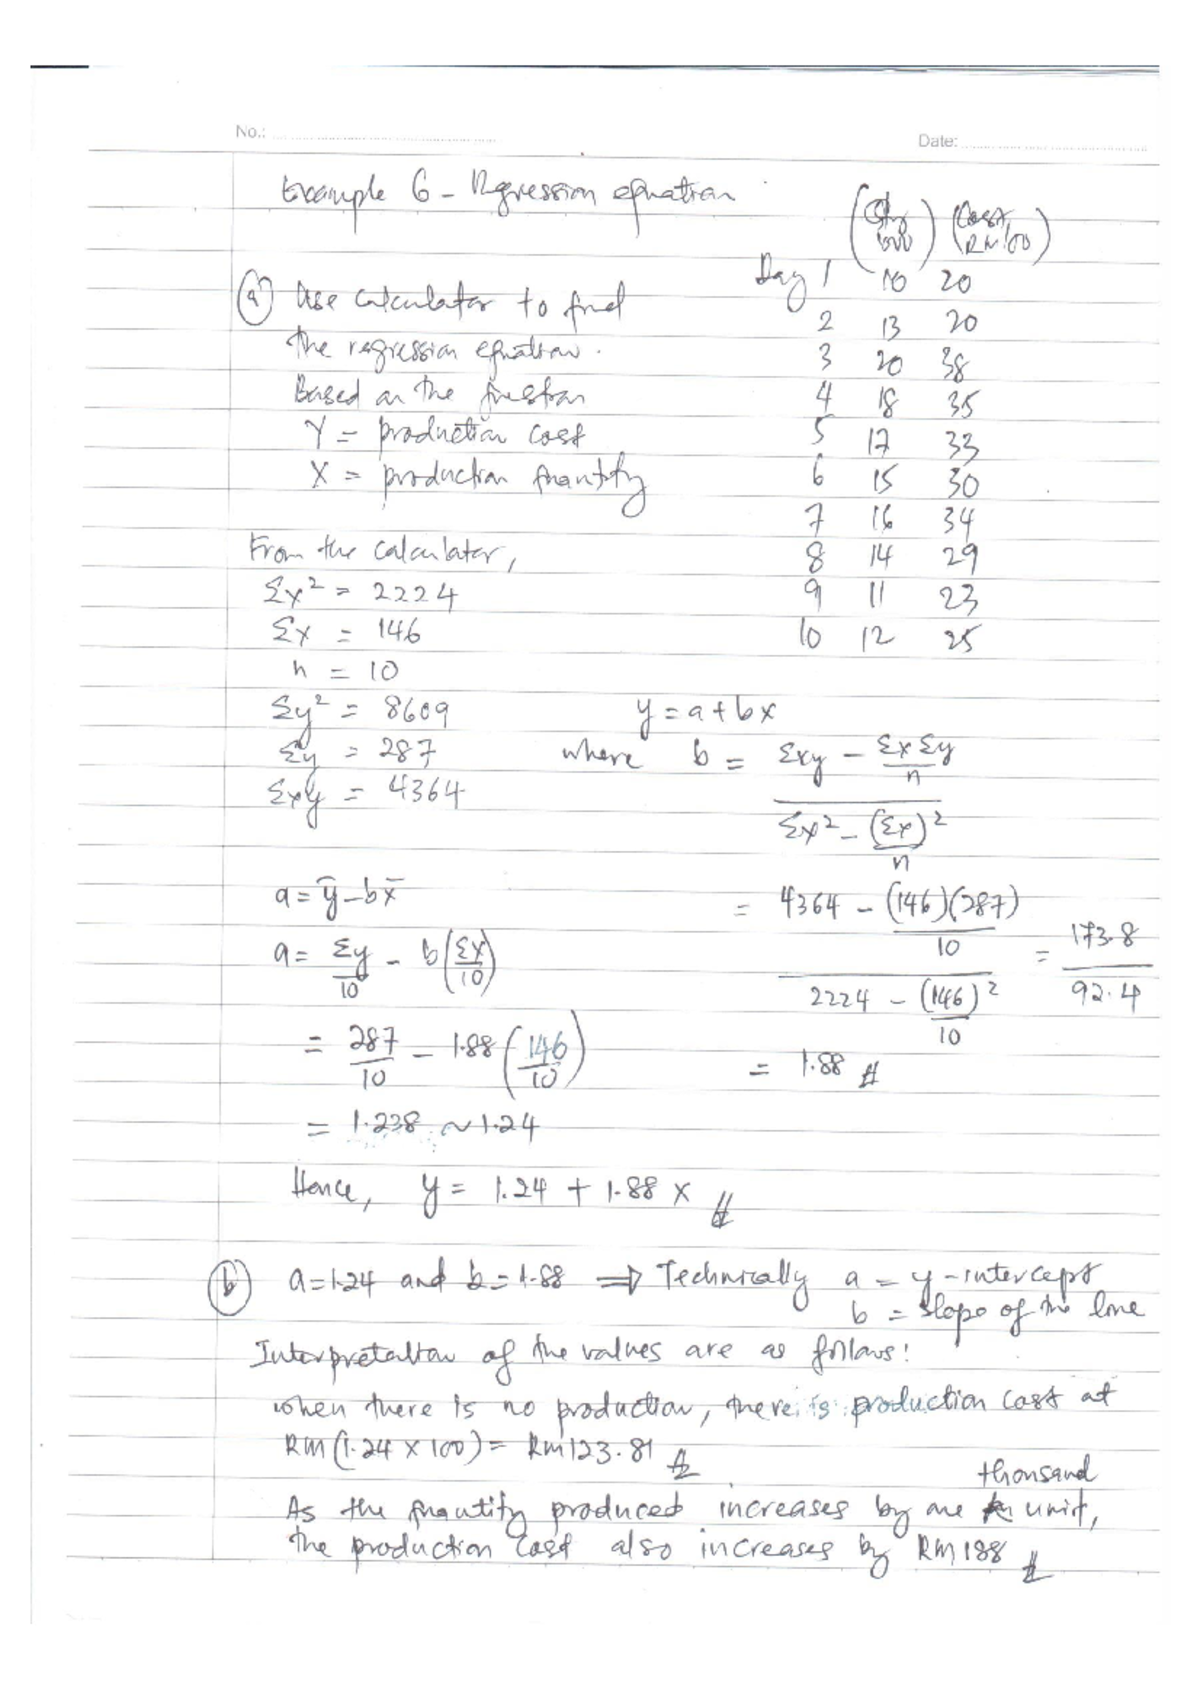 No.:
Date:
Example 6 - Regression equation
(Qty '000) (Cost RM'00)
Day 1 10 20
2 13 20
3 20 38
4 18 35
5 17 33
6 15 30
7 16 34
8 14 29
9 11 23
10 12 25
(a) Use calculator to find
the regression equation.
Based on the question
Y = production cost
X = production quantity
From the calculator,
Σx² = 2224
Σx = 146
n = 10
Σy² = 8609
Σy = 287
Σxy = 4364
y = a + bx
where b = (Σxy - ΣxΣy/n) / (Σx² - (Σx)²/n)
= (4364 - (146)(287)/10) / (2224 - (146)²/10) = 173.8/92.4
= 1.88 #
a = ȳ - bx̄
a = Σy/10 - b(Σx/10)
= 287/10 - 1.88(146/10)
= 1.238 ~ 1.24
Hence, y = 1.24 + 1.88 x #
(b) a = 1.24 and b = 1.88 ⇒ Technically a = y-intercept
b = slope of the line
Interpretation of the values are as follows:
when there is no production, there is production cost at
RM (1.24 x 100) = RM123.81 #
As the quantity produced increases by one thousand unit,
the production cost also increases by RM188 #